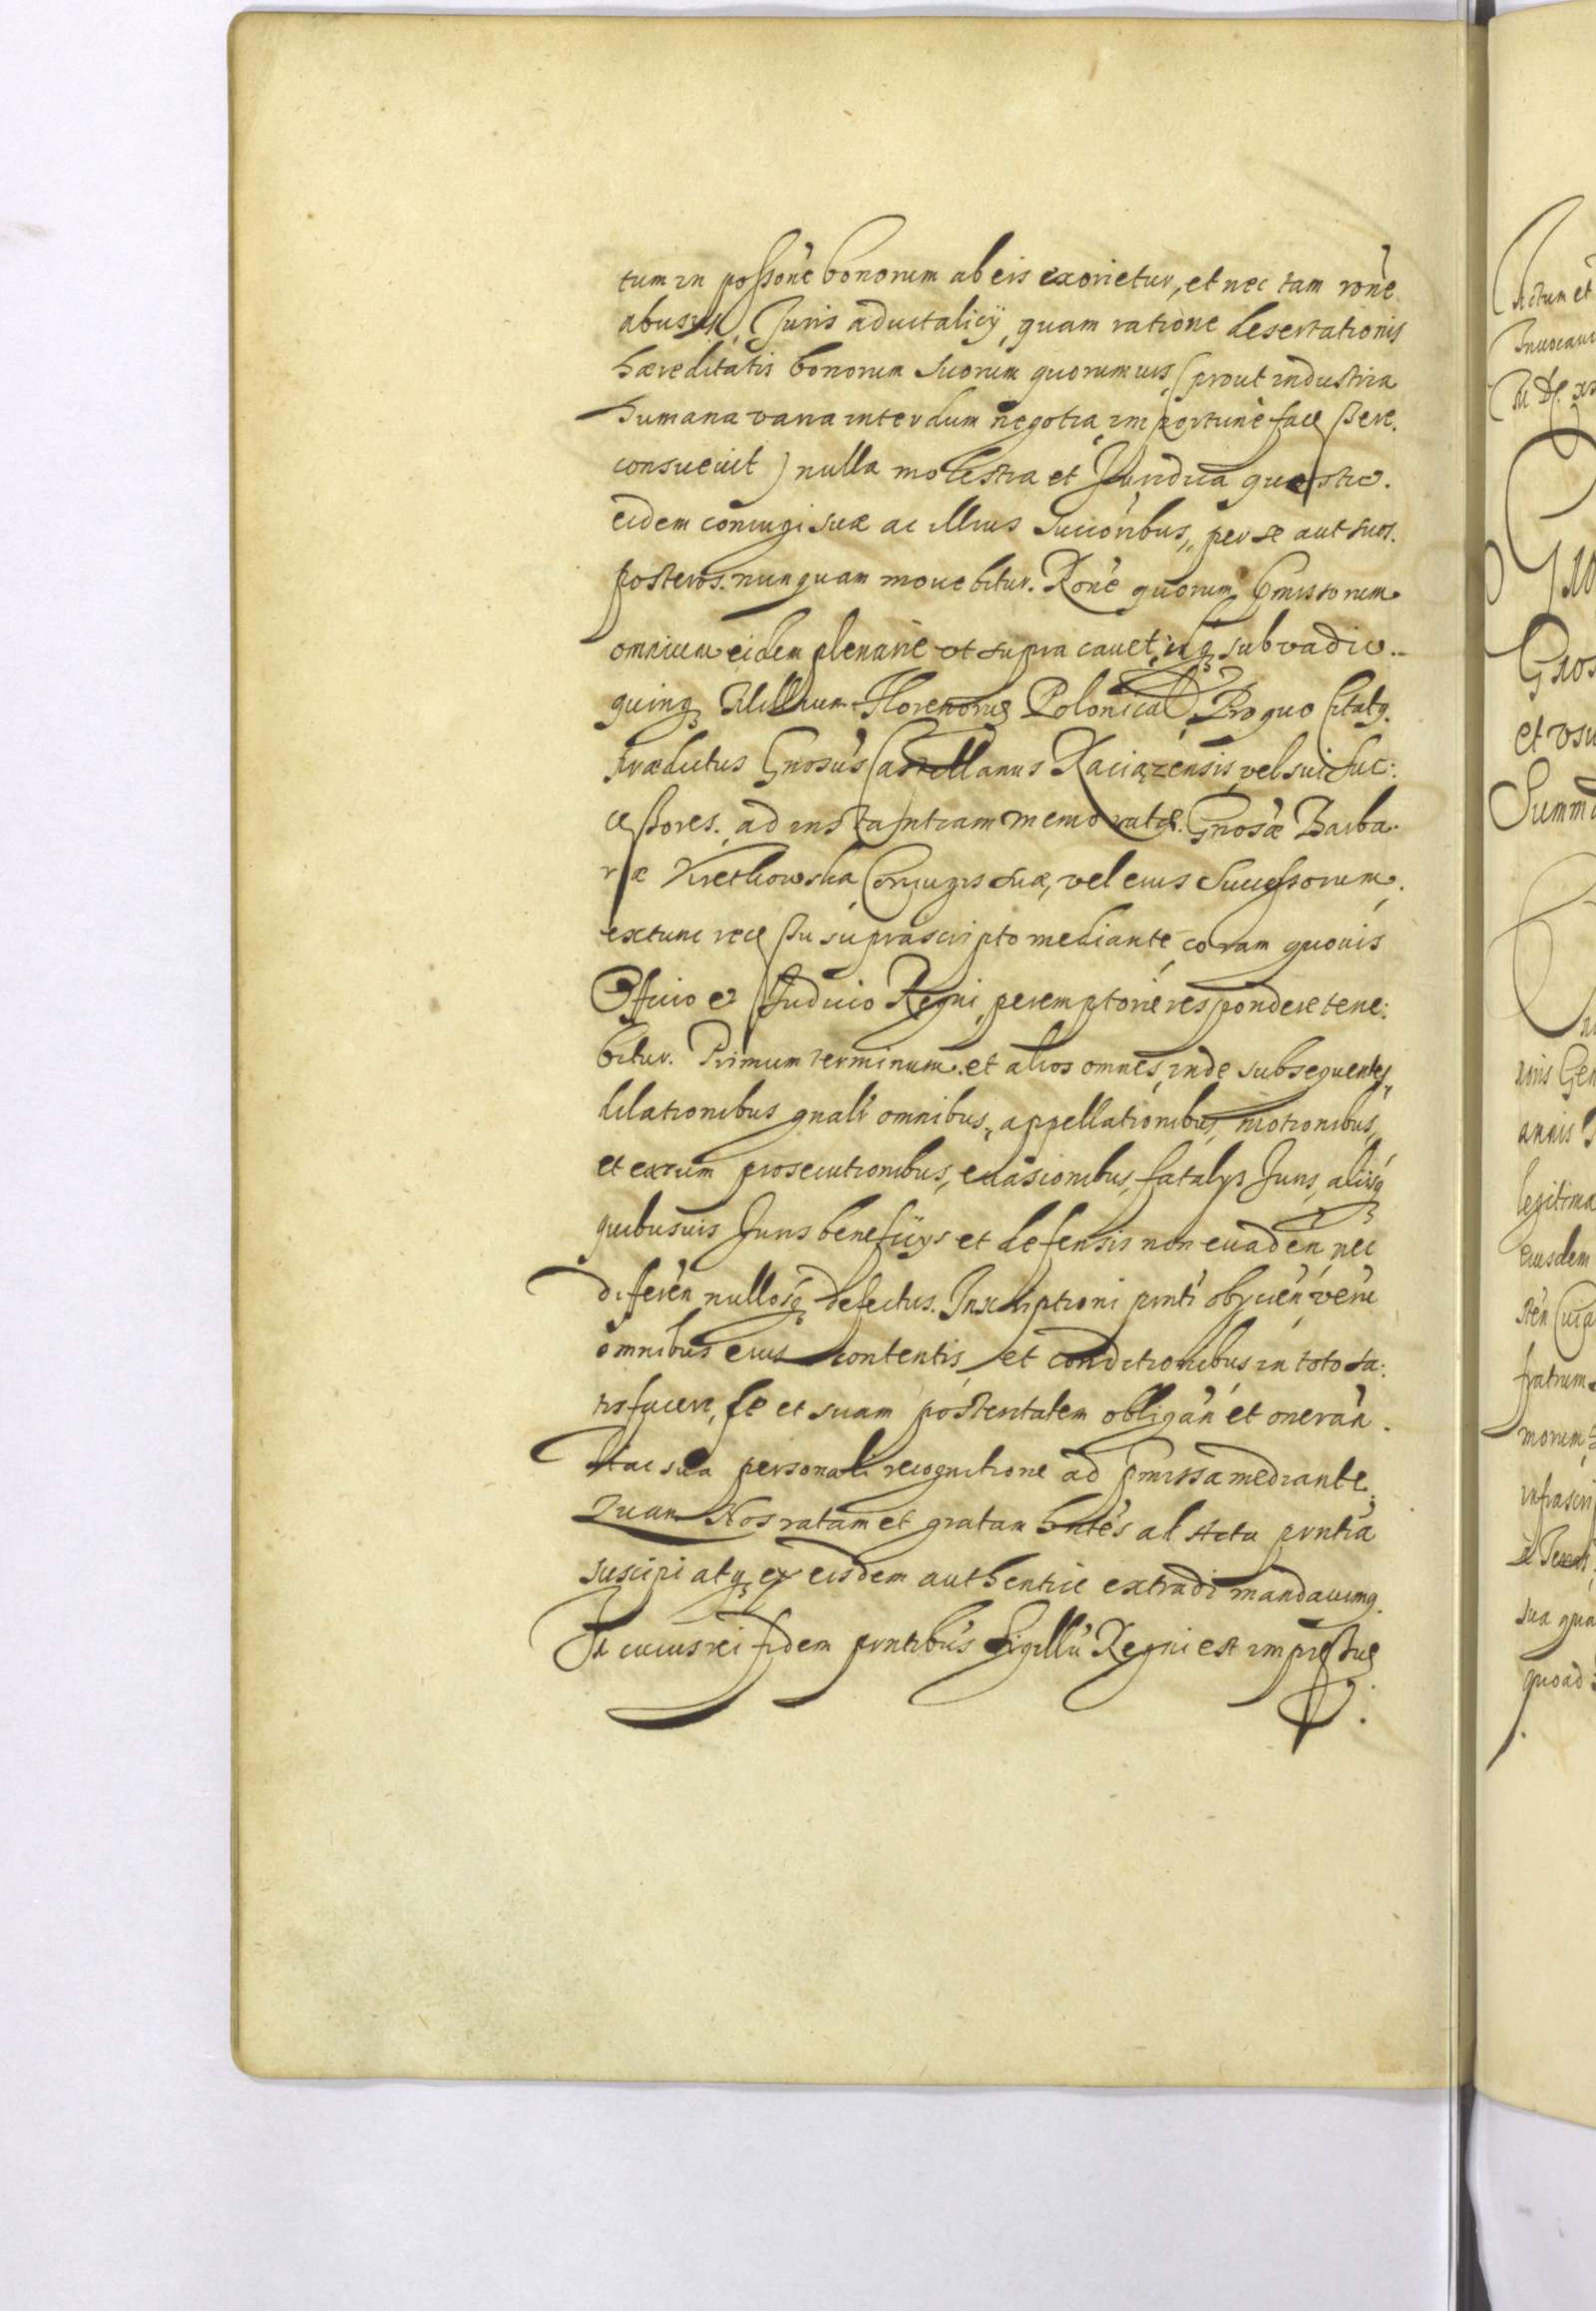 tum in possone bonorum ab eis exorietur, et nec tam rone
abusus, Juris aduitalicij, quam ratione desertationis
hæreditatis bonorum suorum quorumuis (prout industria
humana varia interdum negotia importunè facessere
consueuit) nulla molestia et Juridica quæstio.
eidem coniugi suæ ac illius succoribus, per se aut suos.
posteros. nunquam mouebitur. Rone quorum pmissorum
omnium eidem plenariè vt supra cauet, idq subvadio
quinq Millium Florenorum Polonical. Pro quo Citatq
prædictus Gnosus Castellanus Raciązensis, vel sui suc:
cessores. ad instantiam memoratæ. Gnosæ Barba:
ræ Kretkowska Coniugis suæ, vel eius Successorum,
extunc recessu suprascripto mediante, coram quouis
Officio et Judicio Regni, peremptoriè respondere tene:
bitur. Primum terminum et alios omnes, inde subsequentes,
dilationibus gnali omnibus, appellationibus, motionibus,
et earum prosecutionibus, euasionibus, fatalys Juris, alijsq
quibusuis Juris beneficijs et defensis non euaden, nec
differen nullosq defectus. Inscriptioni pnti obycien, verù
omnibus eius contentis, et conditionibus in toto sa:
tisfacere, se et suam posteritatem obligan et oneran.
Hac sua personali recognitione ad pmissa mediante.
Quam Nos ratam et gratam hntes ad Acta pntia
suscipi atq ex eisdem authenticè extradi mandauimq.
In cuius rei fidem pntibus Sigillu Regni est impressus